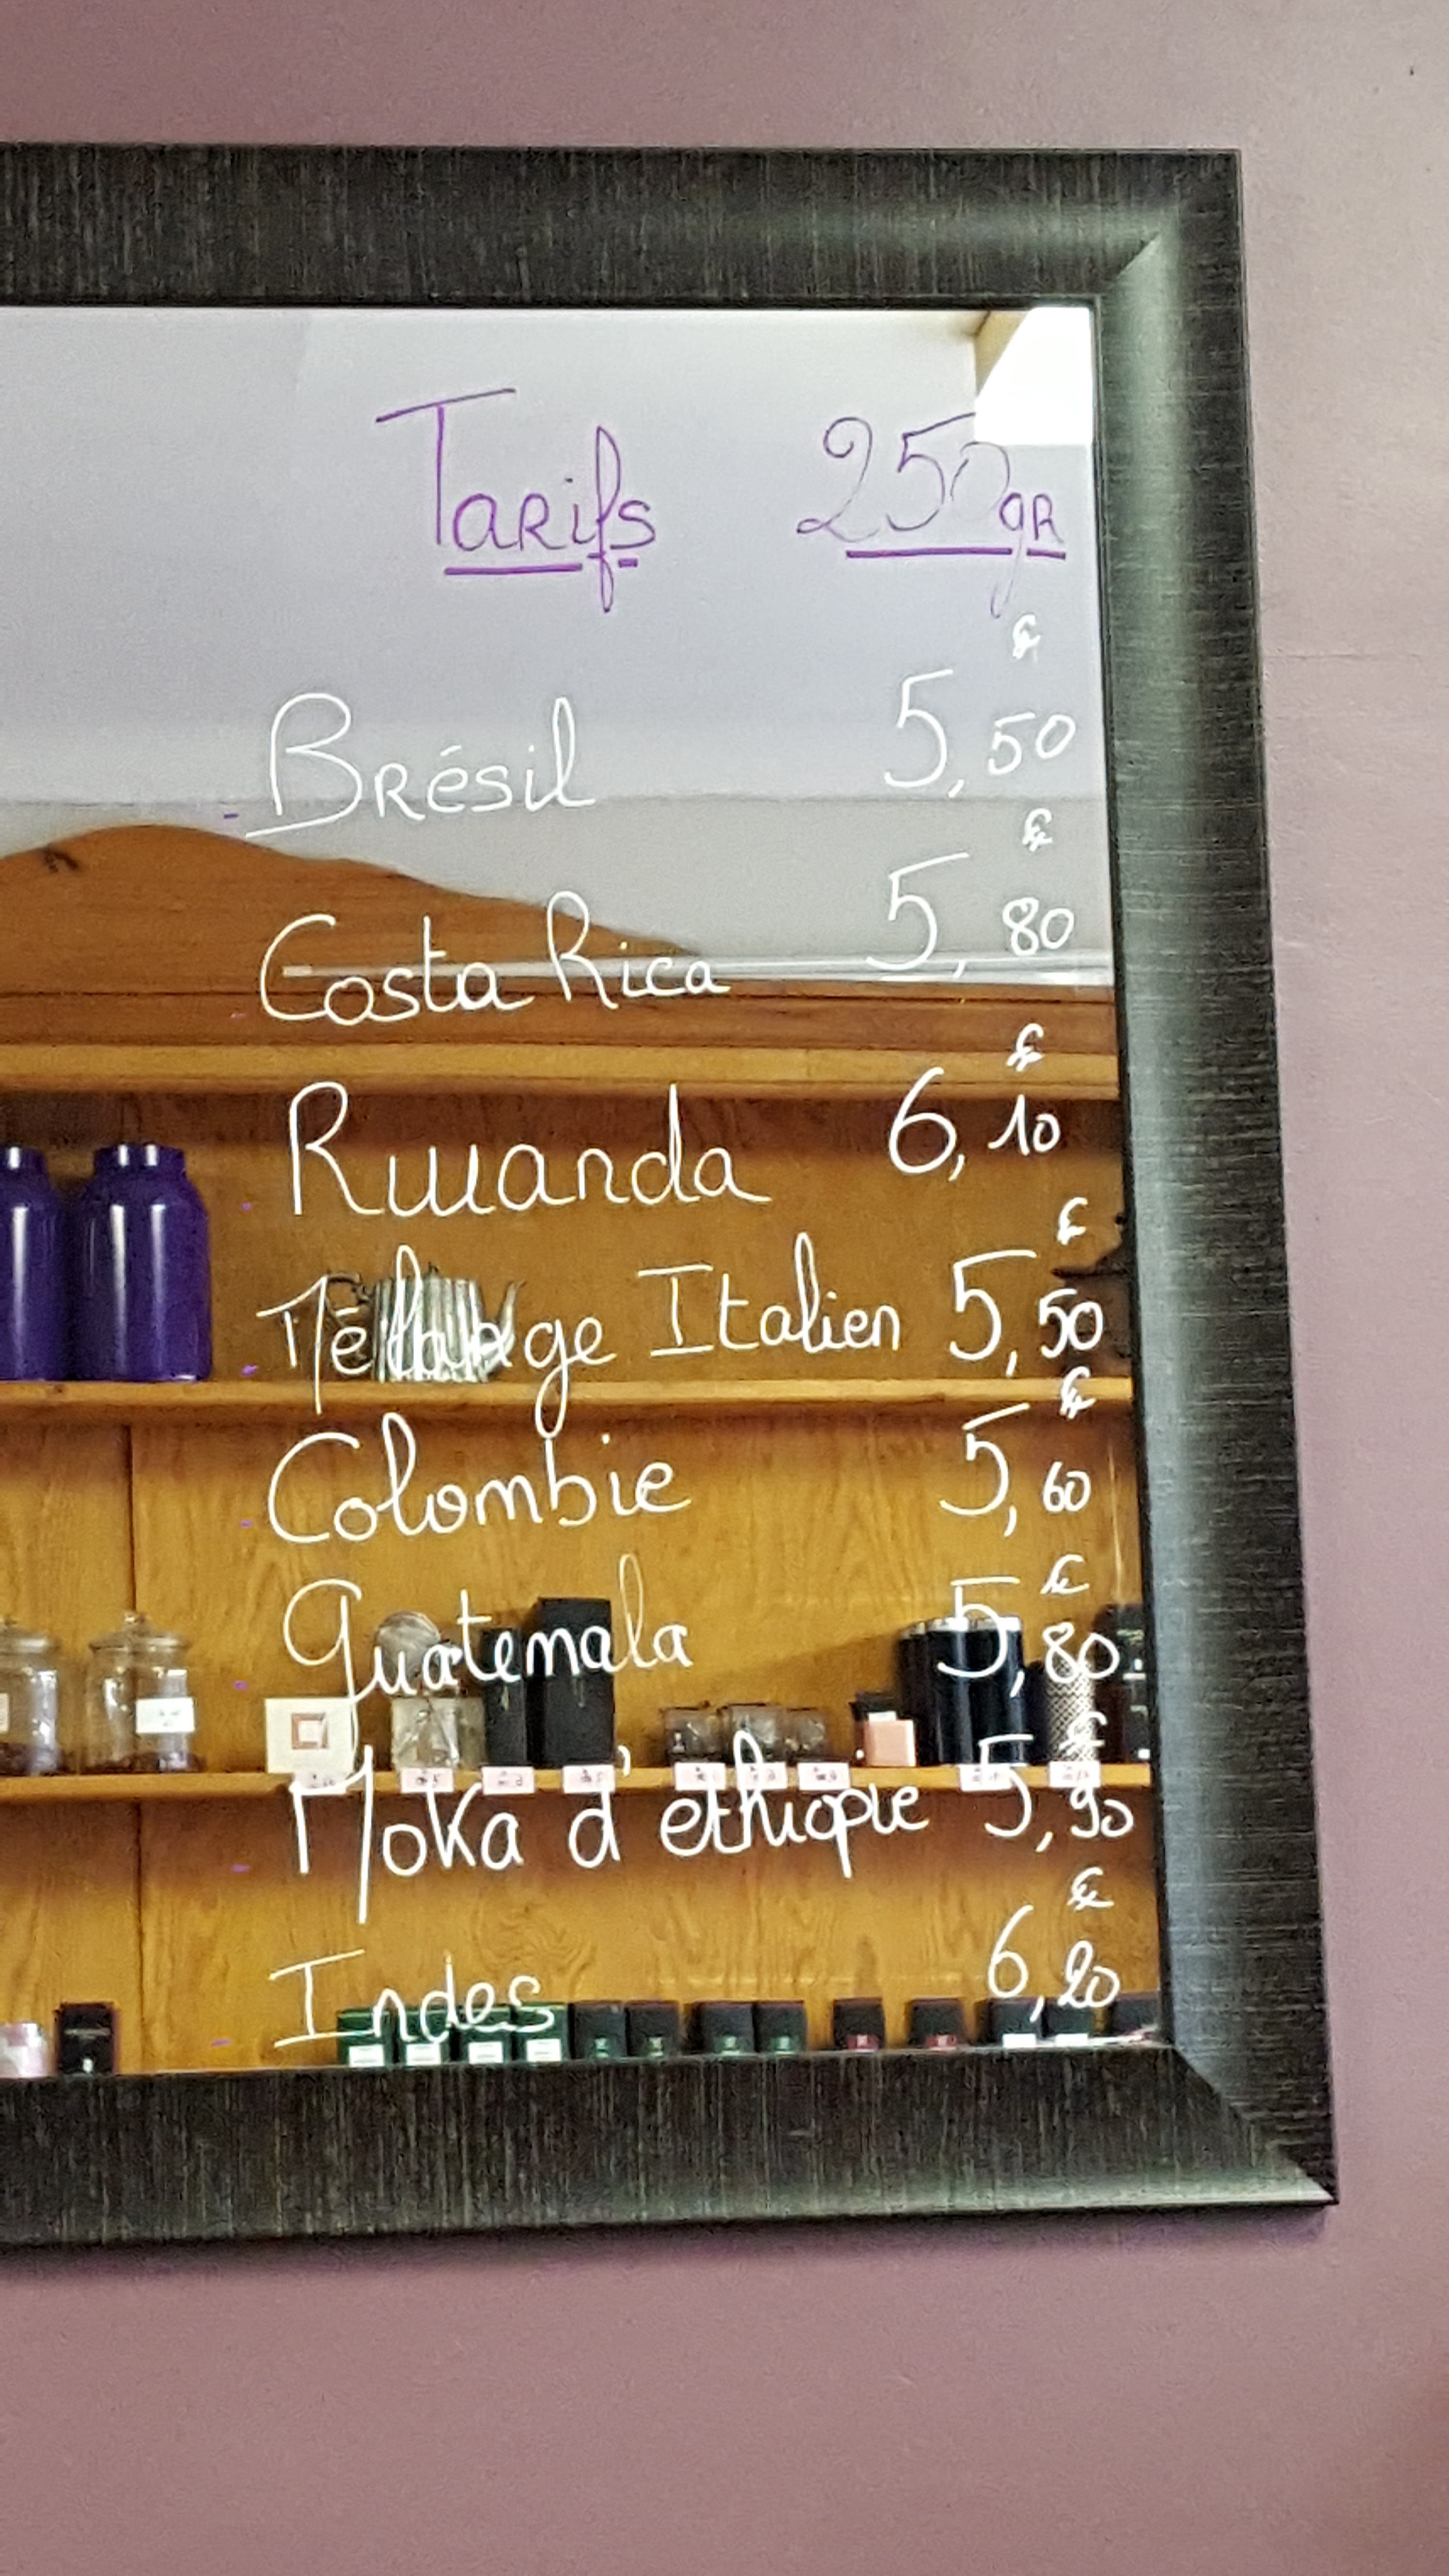 Tarifs 250gr
- Brésil 5,50 €
- Costa Rica 5,80 €
- Rwanda 6,10 €
- Mélange Italien 5,50 €
- Colombie 5,60 €
- Guatemala 5,80 €
- Moka d'éthiopie 5,90 €
- Indes 6,20 €